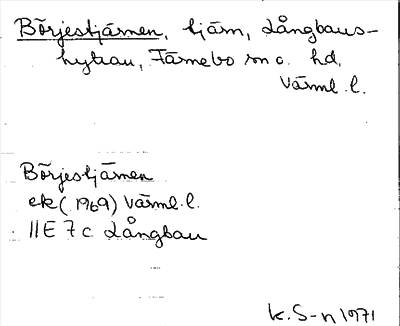 Börjestjärnen, tjärn, Långbans-
hyttan, Färnebo sn o. hd,
Värml. l.
Börjestjärnen
ek (1969) Värml. l.
11E 7c Långban
K. S-n 1971